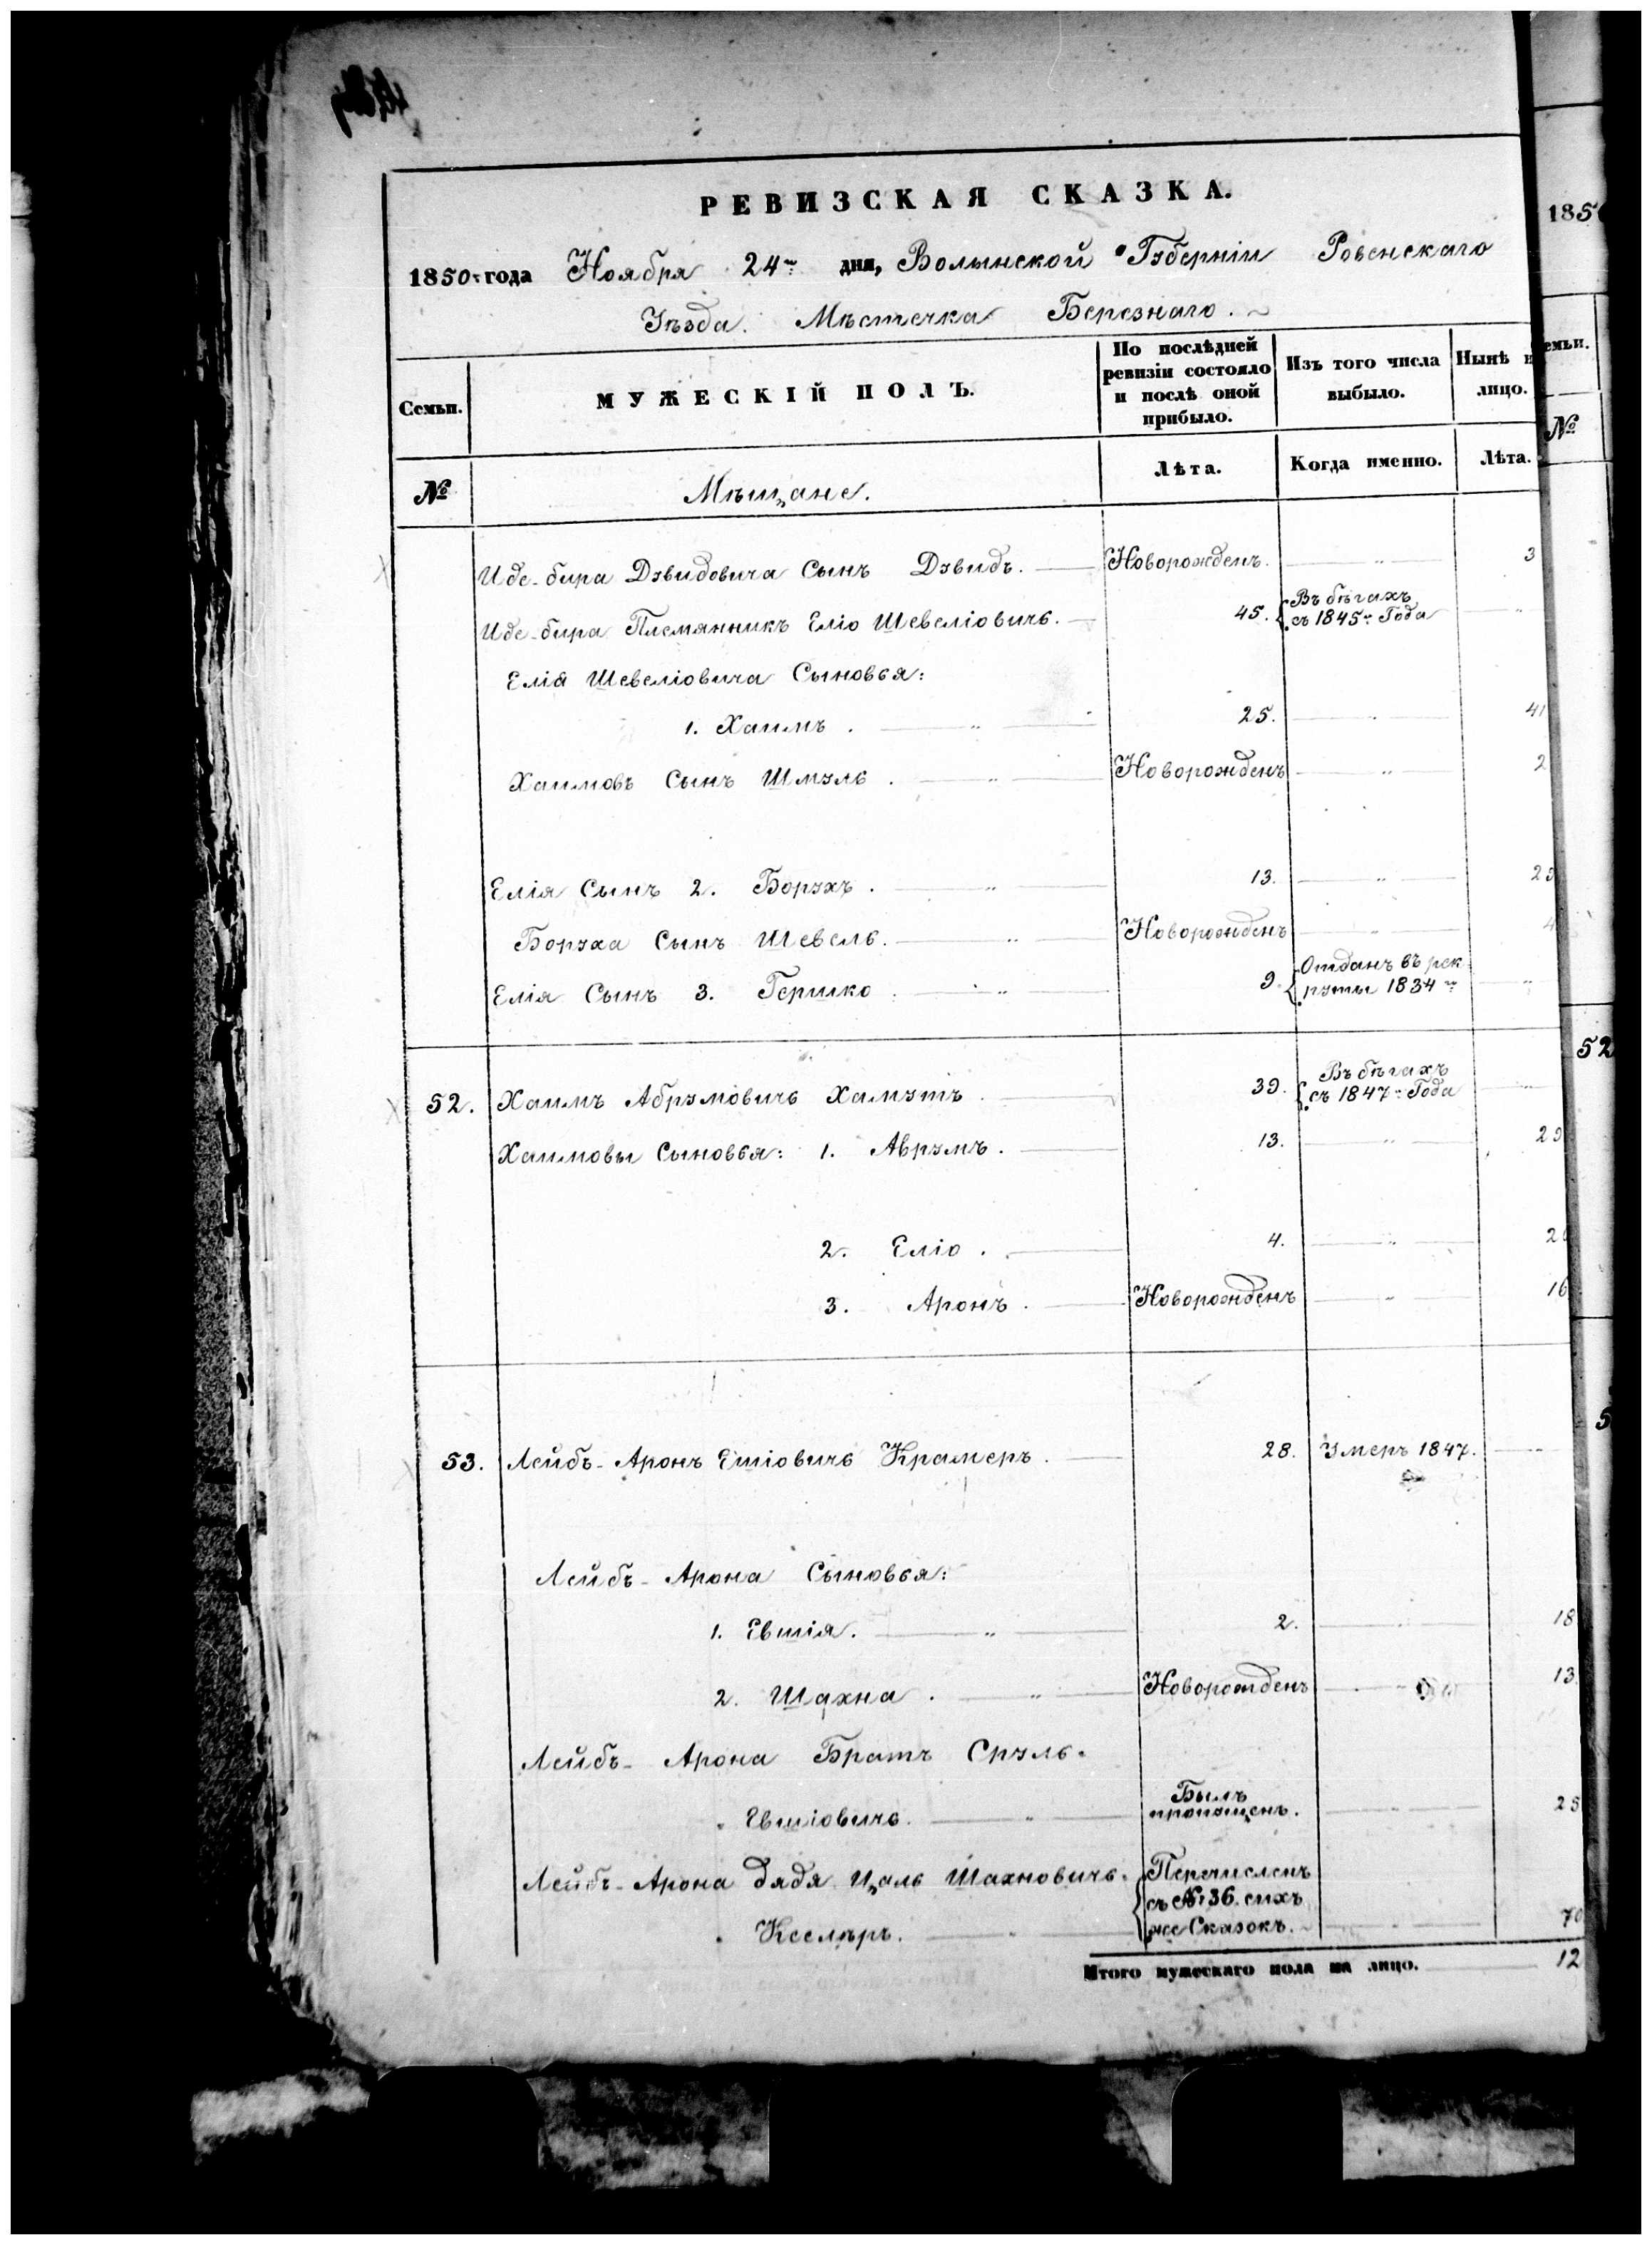 РЕВИЗСКАЯ СКАЗКА.
1850 года Ноября 24 дня, Волынской Губерніи Ровенскаго
Уѣзда Мѣстечка Березнаго.
Семьи.
МУЖЕСКІЙ ПОЛЪ.
По послѣдней ревизіи состояло и послѣ оной прибыло.
Изъ того числа выбыло.
Нынѣ на лицо.
№
Мѣщане.
Лѣта.
Когда именно.
Лѣта.
Иде-бира Дувидовича Сынъ Дувидъ. Новорожденъ. 3
Иде-бира Племянникъ Еліо Шевеліовичъ. 45. Въ бѣгахъ съ 1845 Года
Елія Шевеліовича Сыновья:
1. Хаимъ. 25. 41
Хаимовъ Сынъ Шмуль. Новорожденъ 2
Елія Сынъ 2. Борухъ. 13. 29
Боруха Сынъ Шевель. Новорожденъ 4
Елія Сынъ 3. Гершко 9. Отданъ въ рекруты 1834
52. Хаимъ Абрумовичь Хамутъ 39. Въ бѣгахъ съ 1847 Года
Хаимовы Сыновья: 1. Аврумъ. 13. 29
2. Еліо. 4. 20
3. Аронъ. Новорожденъ 16
53. Лейбъ-Аронъ Ешіовичъ Крамеръ. 28. Умеръ 1847.
Лейбъ-Арона Сыновья:
1. Евшія. 2. 18
2. Шахна. Новорожденъ 13
Лейбъ-Арона Братъ Сруль.
Евшіовичь. Былъ пропущенъ. 25
Лейбъ-Арона дядя Цаль Шахновичь. Перечисленъ
съ № 36. сихъ
Кселѣръ. же Сказокъ. 70
Итого мужескаго пола на лицо. 12
185
емьи.
№
52
5